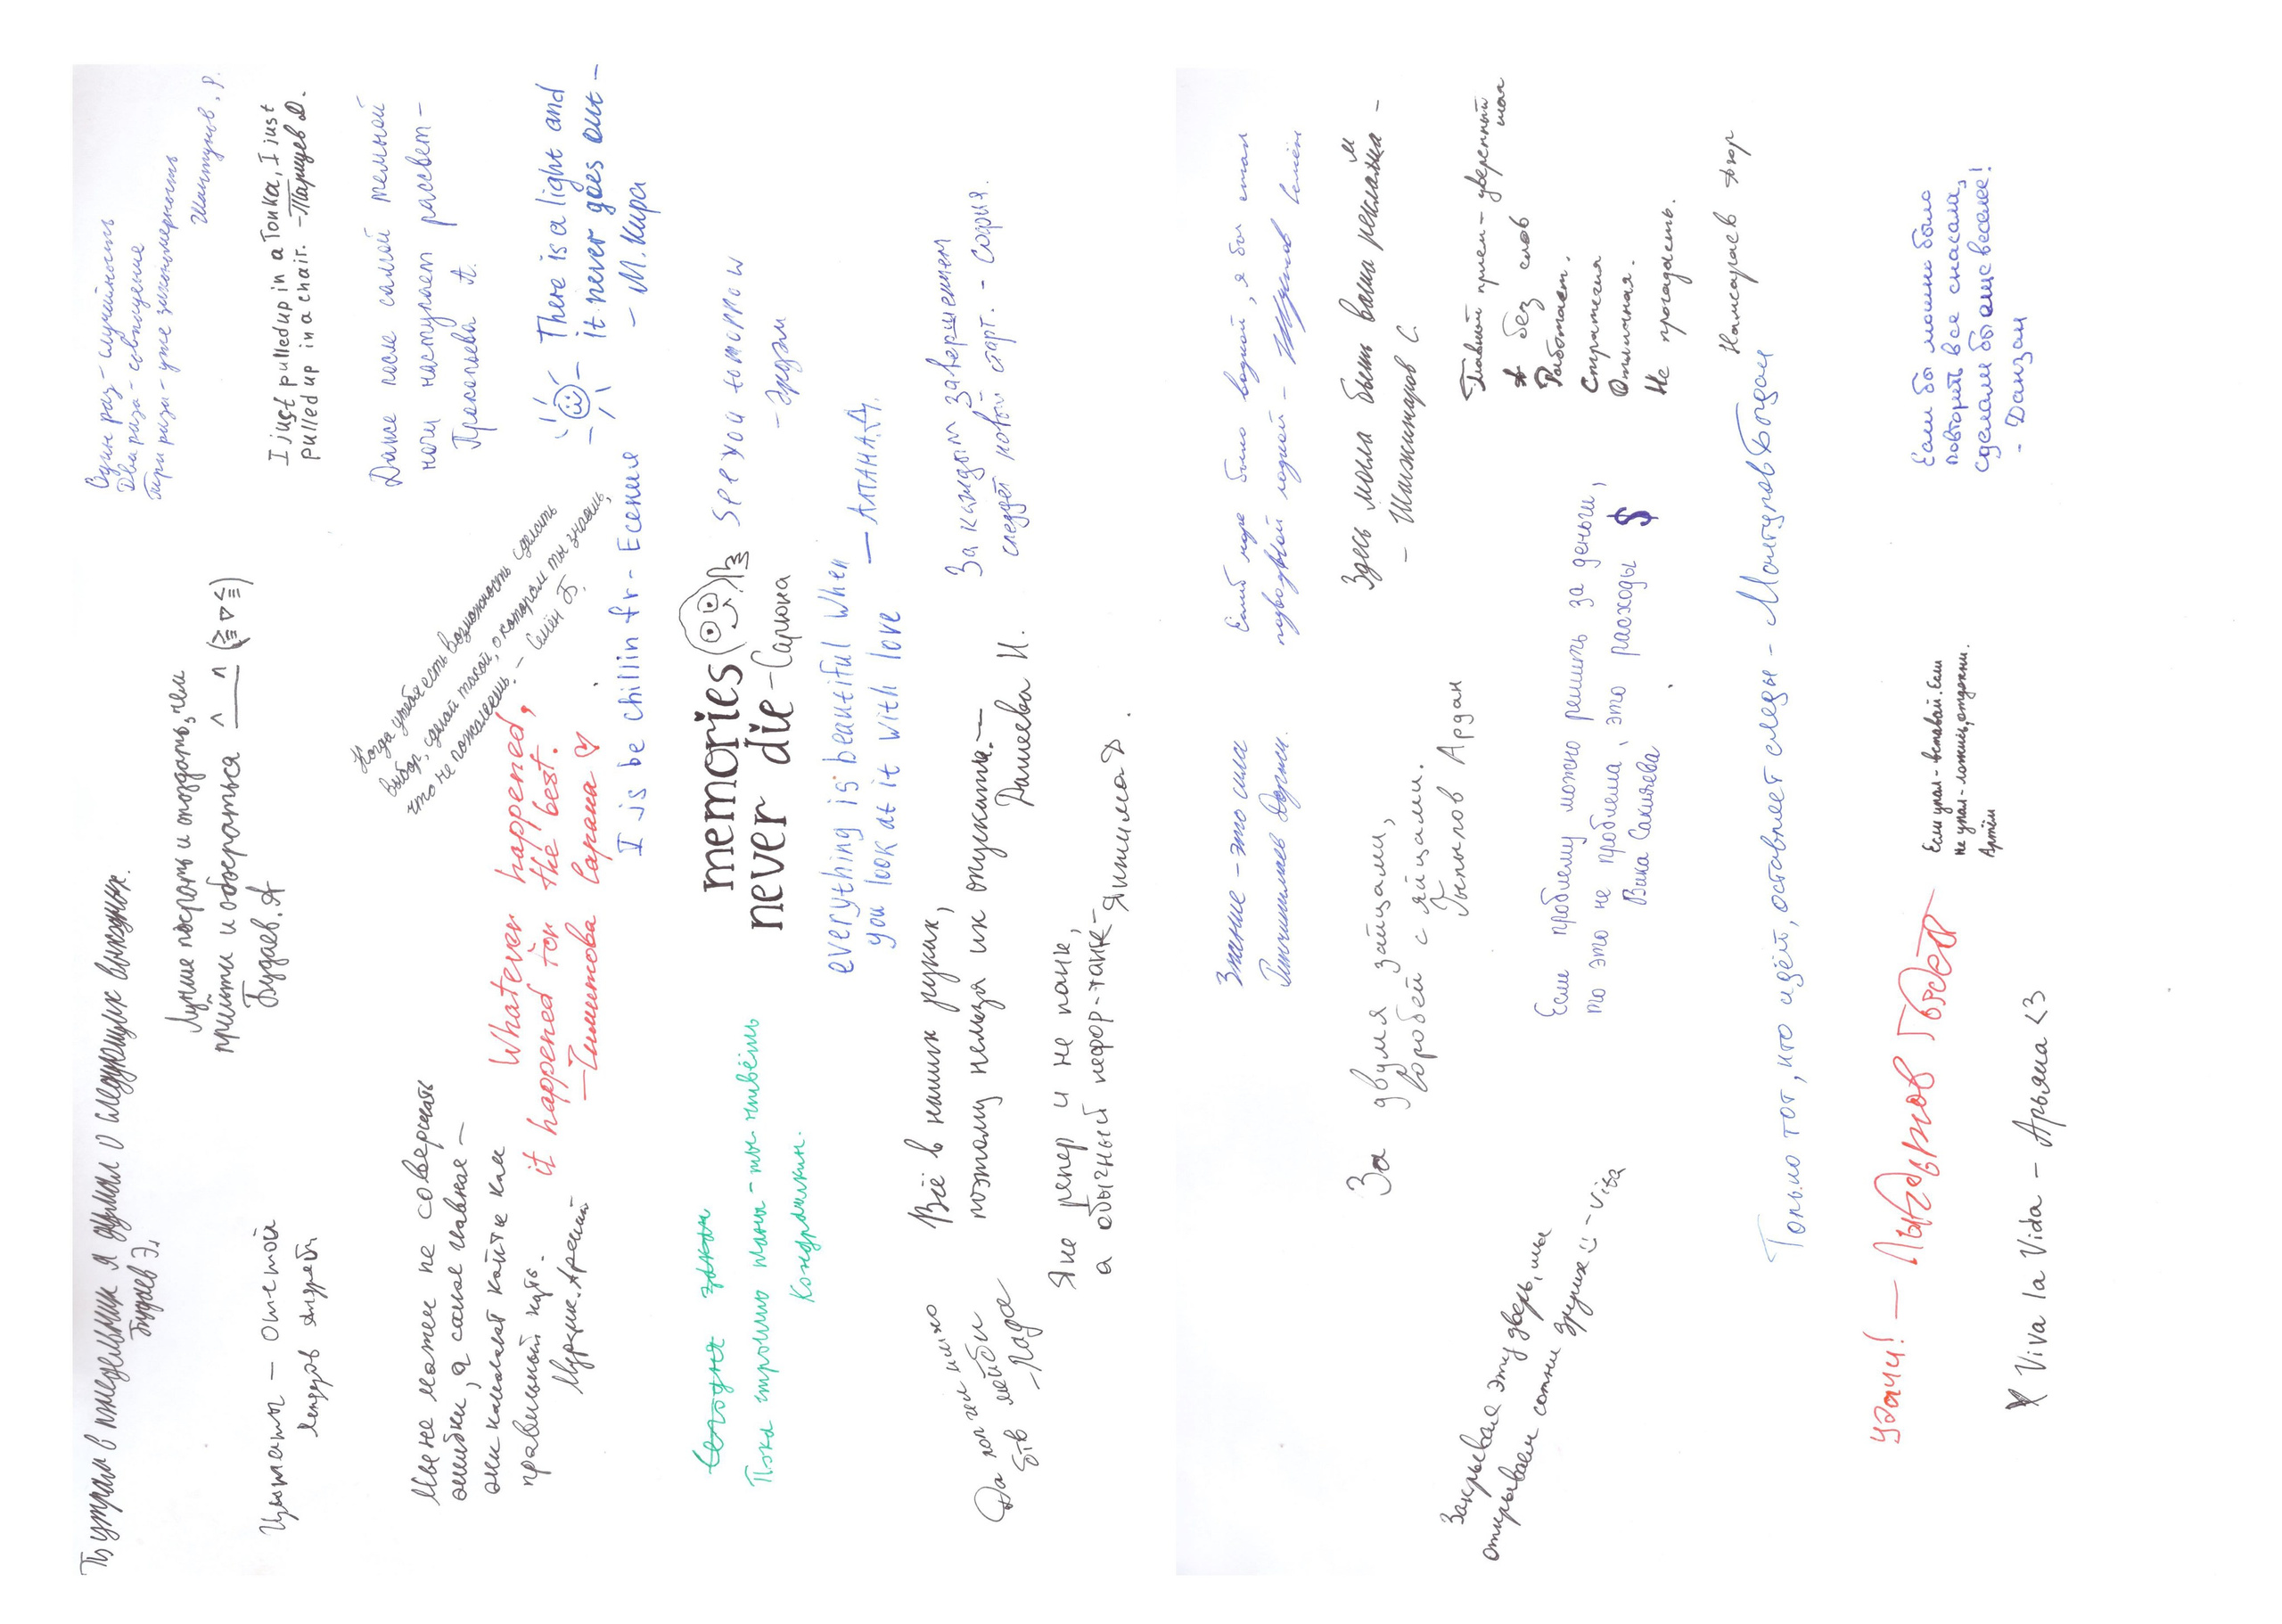 По утрам в понедельник я думал о следующих выходных.
Будаев Э.
Лучше поспать и опоздать, чем
прийти и обосраться ^___^ (≧∇≦)
Будаев. А
Один раз - случайность
Два раза - совпадение
Три раза - уже закономерность
Шантунов. Р.
Цитаты - отстой
Андрей
I just pulled up in a Tonka, I just
pulled up in a chair. - Тарицев Д.
Мы не можем не совершать
ошибки, а самое главное -
они помогают найти на
правильный путь.
Арсений
Когда у тебя есть возможность сделать
выбор, сделай такой, о котором ты знаешь,
что не пожалеешь. - Семён Б.
Даже после самой темной
ночи наступает рассвет -
Прокопьева А.
Whatever happened,
it happened for the best.
- Сарана ♡
There is a light and
it never goes out -
- М. Кира
I is be chillin fr - Есения
Сегодня
Пока строишь планы - ты живёшь
Кондрашкин.
memories
never die - Сарюна
See you tomorrow
- Эрдэм
everything is beautiful when
you look at it with love - АЛТАНА Д.
Да
- Лада
Всё в наших руках,
поэтому нельзя их опускать. -
Дашеева И.
За каждым завершением
следует новый старт. - София.
Я не репер и не панк,
а обычный нефор-танк -
Янжима Д
Знание - это сила
Если море было водкой, я бы стал
подводной лодкой - Семён
За двумя зайцами,
воробей с яйцами.
Гылыков Ардан
Здесь могла быть ваша реклама -
- Шагжитаров С.
Закрывая эту дверь, мы
открываем сотни других :) - Vika
Если проблему можно решить за деньги,
то это не проблема, это расходы $
Вика Сакияева
Главный прием - уверенный шаг
без слов
Работает.
Стратегия
Отличная.
Не прогадаешь.
Намсараев Дзор
Только тот, кто идёт, оставляет следы - Мантулов Богдан
удачи! - Лыгдынов Гэсэр
Если упал - вставай. Если
не упал - ложись, отдохни.
Артём
Если бы можно было
повторить все сначала,
сделали бы еще веселее!
- Данзан
Viva la Vida - Арьяна <3